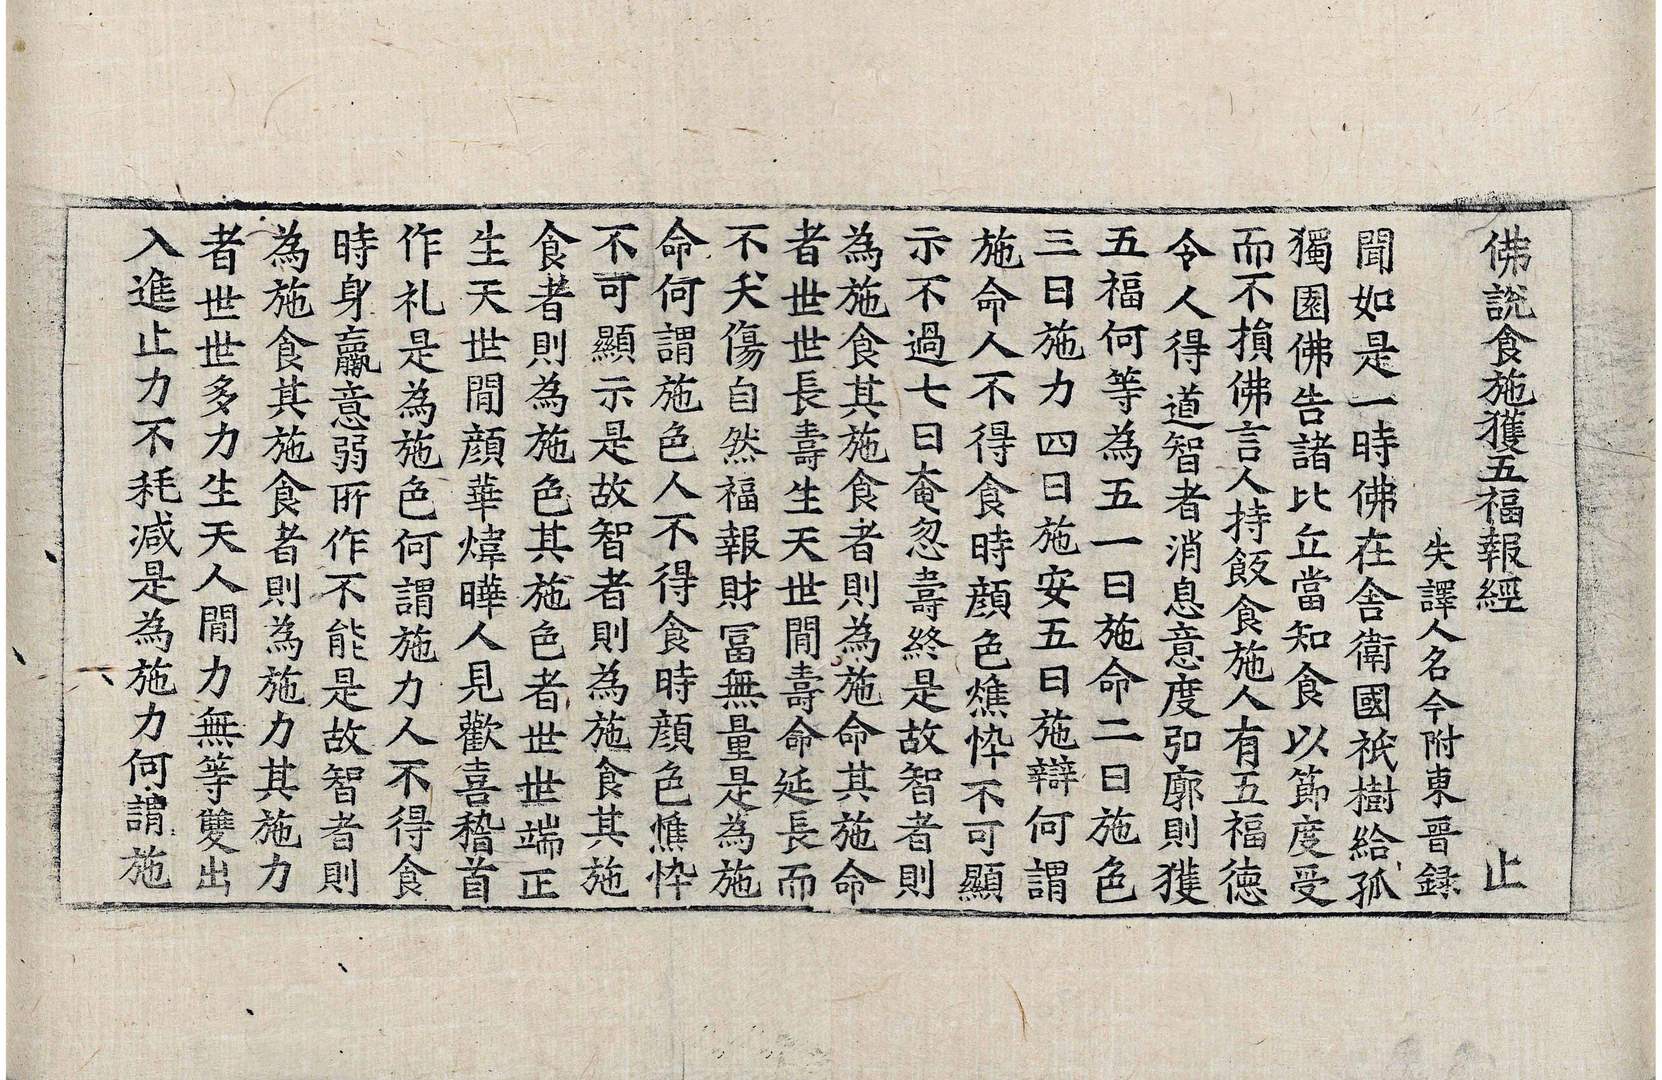 佛說食施獲五福報經 止
失譯人名今附東晉録
聞如是一時佛在舍衛國祇樹給孤
獨園佛告諸比丘當知食以節度受
而不損佛言人持飯食施人有五福德
令人得道智者消息意度弘廓則獲
五福何等為五一曰施命二曰施色
三曰施力四曰施安五曰施辯何謂
施命人不得食時顔色燋悴不可顯
示不過七日奄忽壽終是故智者則
為施食其施食者則為施命其施命
者世世長壽生天世閒壽命延長而
不夭傷自然福報財冨無量是為施
命何謂施色人不得食時顔色憔悴
不可顯示是故智者則為施食其施
食者則為施色其施色者世世端正
生天世閒顔華煒曄人見歡喜稽首
作礼是為施色何謂施力人不得食
時身羸意弱所作不能是故智者則
為施食其施食者則為施力其施力
者世世多力生天人閒力無等雙出
入進止力不耗減是為施力何謂施